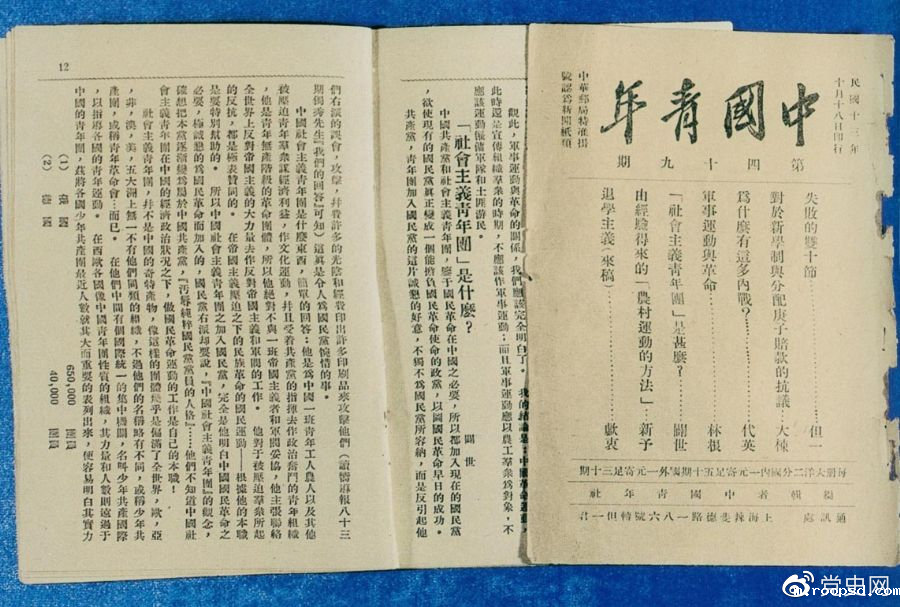 民國十三年
十月十八日印行
中國青年
第四十九期
中華郵局特准掛
號認爲新聞紙類
失敗的雙十節……但一
對於新學制與分配庚子賠款的抗議…大楝
爲什麼有這多內戰?……代英
軍事運動與革命……林根
「社會主義青年團」是甚麼?……闢世
由經驗得來的「農村運動的方法」…新予
退學主義(來稿)……獻衷
每册大洋二分國內一元寄足五十期國外一元寄足三十期
編輯者中國青年社
通訊處 上海辣斐德路一八六號轉但一君
觀此,軍事運動與革命的關係,我們應該完全明白了。
此時還是宣傳組織羣衆的時期,不應該作軍事運動;而且軍事運動應以農工羣衆爲對象,不
應該運動僱傭軍隊和土匪游民。
「社會主義青年團」是什麼?
闢世
中國共產黨和社會主義青年團,鑒于國民革命在中國之必要,所以都加入現在的國民黨
,欲使現有的國民黨眞正變成一個能擔負國民革命使命的政黨,以圖國民革命早日的成功。
共產黨,青年團加入國民黨的這片誠懇的好意,不獨不爲國民黨所容納,而是反引起他
12
們右派的誤會,攻擊,幷費許多的光陰和經費印出許多印刷品來攻擊他們(讀嚮導報八十三
期獨秀先生『我們的回答』可知)這眞是令人爲國民黨惋惜的事。
中國社會主義青年團是什麼東西,簡單的回答:他是爲中國一班青年工人農人以及其他
被壓迫青年羣衆謀經濟利益,作文化運動,幷且受着共產黨的指揮去作政治奮鬥的青年組織
,他是青年無產階級的革命團體,所以他絕對不與一班帝國主義者和軍閥妥協,他主張聯絡
全世界上反對帝國主義的大力量去作反對帝國主義和軍閥的工作。 他對于被壓迫羣衆所起
的反抗,都是極表贊同的。 在帝國主義壓迫之下的民族革命的國民運動——根據他的本職
是要特別幫助的。 所以中國社會主義青年團之加入國民黨,完全是他明白中國國民革命之
必要,極誠懇的爲國民革命而加入的,國民黨右派却要說,『中國社會主義青年團』的觀念,
確想把本黨逐漸變爲屬於中國共產黨,『汚辱純粹國民黨黨員的人格』……他們不知道中國社
會主義青年團在中國的經濟政治狀況之下,做國民革命運動的工作是自己的本職!
社會主義青年團,幷不是中國的奇特產物,像這樣的團體幾乎是偏滿了全世界,歐,亞
,非,澳,美,五大洲上無一不有他們同類的組織,不過他們的名稱略有不同,或稱少年共
產團,或稱青年革命會…而已。 在他們中間有個國際統一的集中機關,名叫少年共產國際
,以指導各國的青年運動。 在西歐各國像中國青年團性質的組織,其力量和人數則遠過于
中國的青年團,茲將各國少年共產團最近人數就其大而重要的表列出來,使容易明白其實力
(1) 俄國 650,000 團員
(2) 德國 40,000 團員
党史网